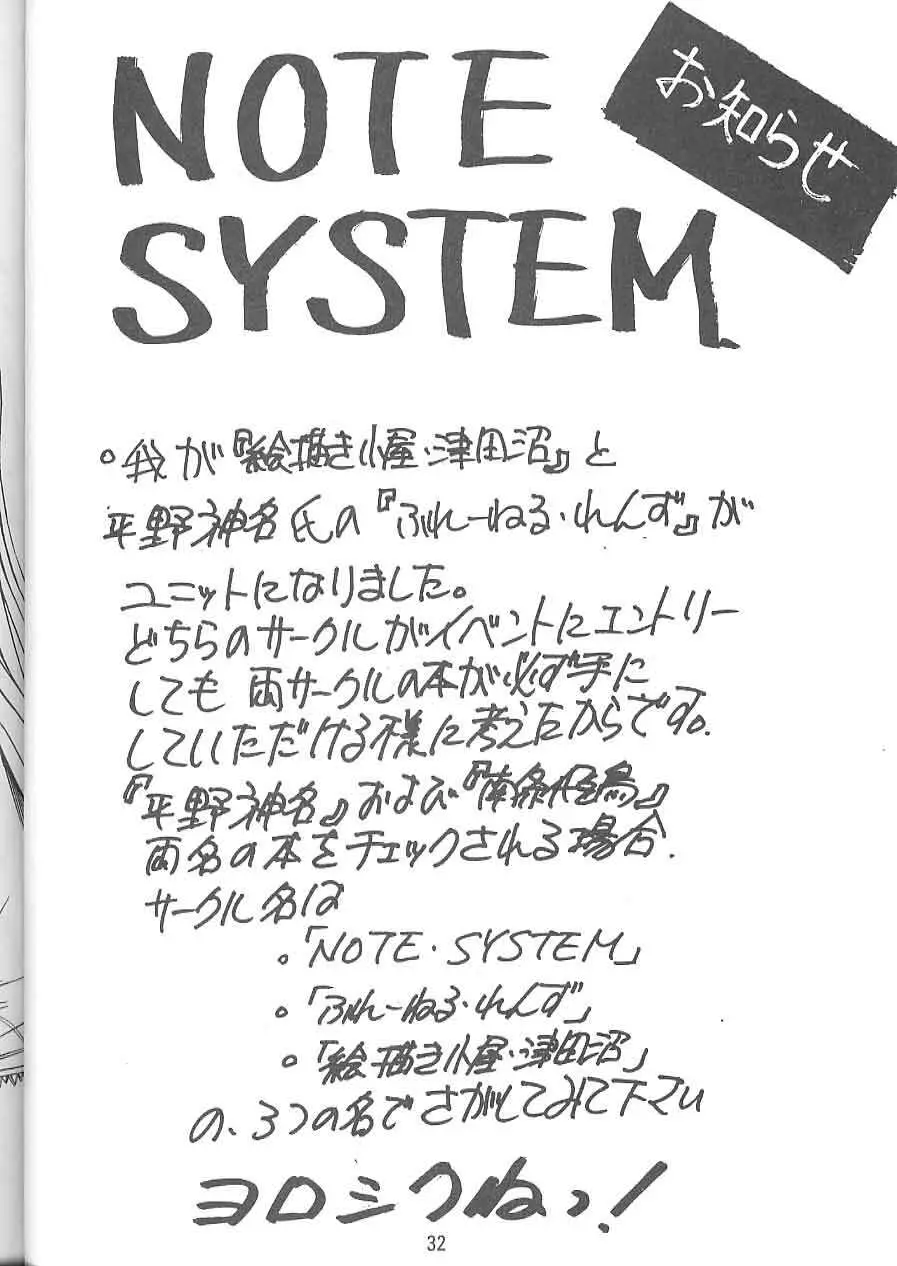 NOTE
SYSTEM
お知らせ
。我が『絵描き小屋・津田沼』と
平野神名氏の『ふれーねる・れんず』が
ユニットになりました。
どちらのサークルがイベントにエントリー
しても両サークルの本が必ず手に
していただける様に考えたからです。
『平野神名』および『南条怪鳥』
両名の本をチェックされる場合.
サークル名は
。「NOTE・SYSTEM」
。「ふれーねる・れんず」
。「絵描き小屋・津田沼」
の、3つの名でさがしてみて下さい
ヨロシクねっ!
32